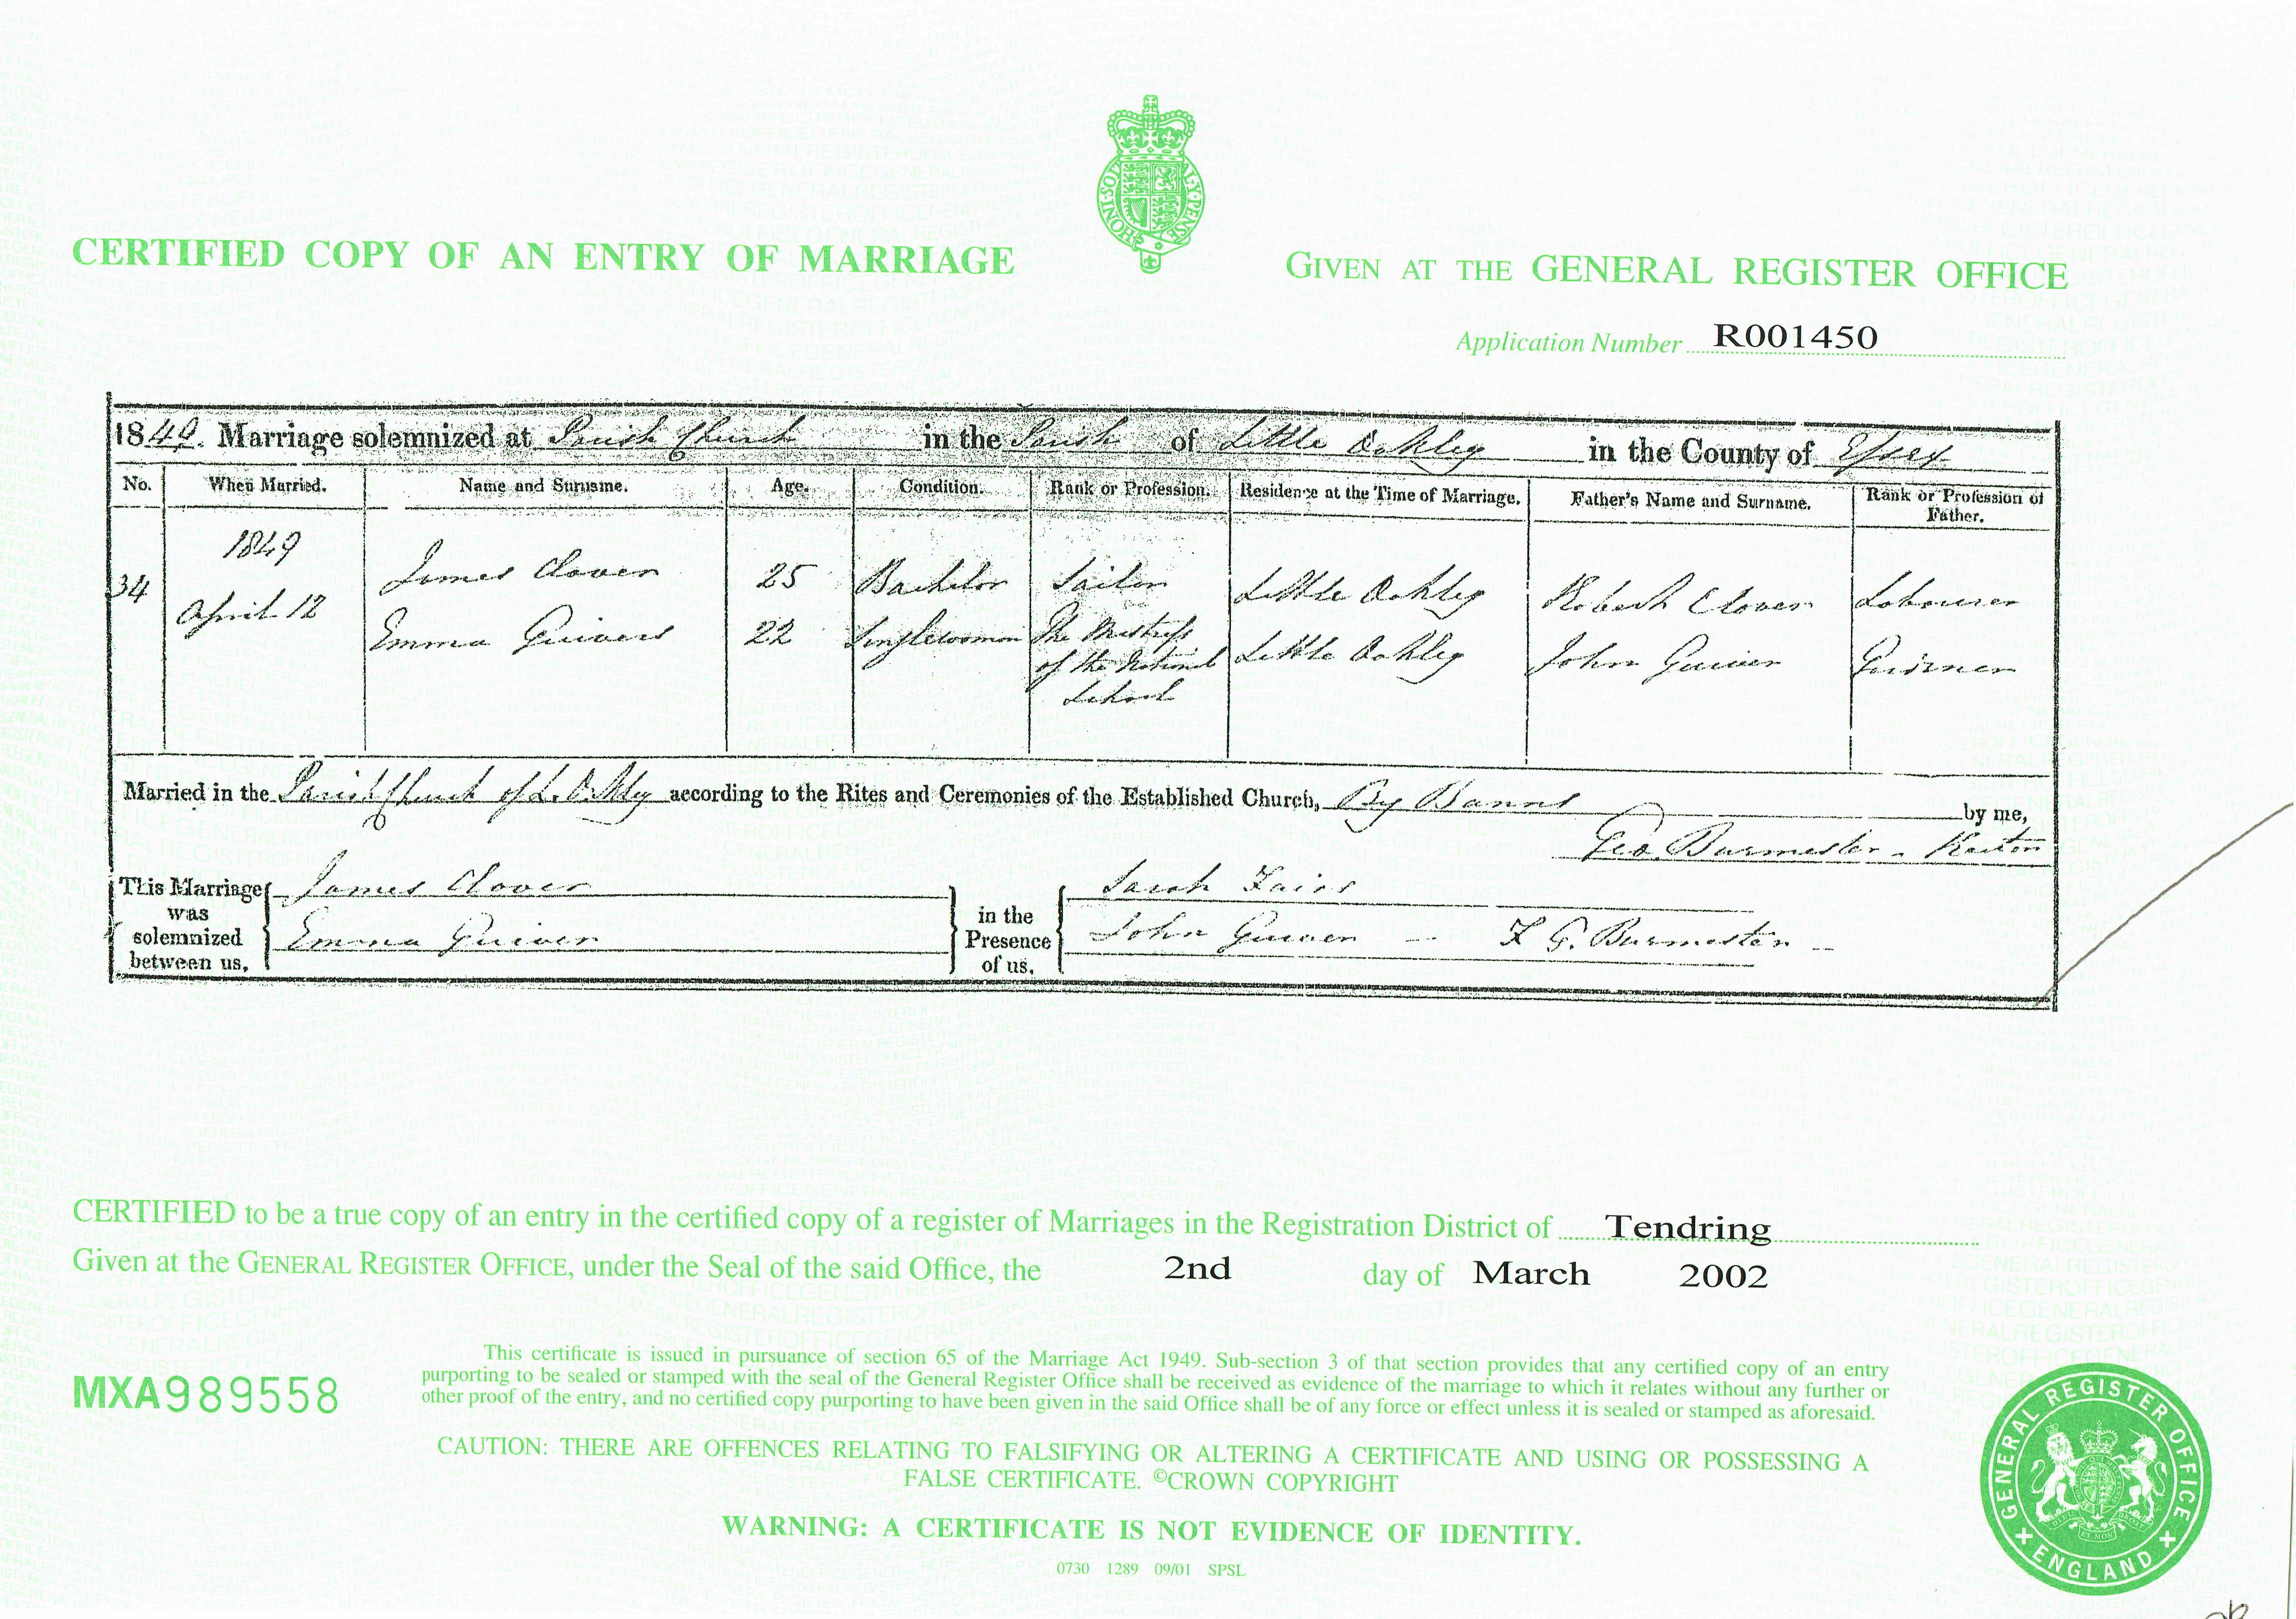 HONI·SOIT LY·PENSE
CERTIFIED COPY OF AN ENTRY OF MARRIAGE
GIVEN AT THE GENERAL REGISTER OFFICE
Application Number R001450
1849. Marriage solemnized at Parish Church in the Parish of Little Oakley in the County of Essex
No. When Married. Name and Surname. Age. Condition. Rank or Profession. Residence at the Time of Marriage. Father's Name and Surname. Rank or Profession of Father.
34 1849 April 12
James Clover 25 Bachelor Little Oakley Robert Clover Labourer
Emma Quiver 22 Singlewoman The Mistress of the National School Little Oakley John Quiver
Married in the Parish Church of L. Oakley according to the Rites and Ceremonies of the Established Church, By Banns by me,
Geo. Burmester - Rector
This Marriage was solemnized between us, James Clover
Emma Quiver
in the Presence of us, Sarah
John Quiver — F G. Burmester —
CERTIFIED to be a true copy of an entry in the certified copy of a register of Marriages in the Registration District of Tendring
Given at the GENERAL REGISTER OFFICE, under the Seal of the said Office, the 2nd day of March 2002
This certificate is issued in pursuance of section 65 of the Marriage Act 1949. Sub-section 3 of that section provides that any certified copy of an entry
purporting to be sealed or stamped with the seal of the General Register Office shall be received as evidence of the marriage to which it relates without any further or
other proof of the entry, and no certified copy purporting to have been given in the said Office shall be of any force or effect unless it is sealed or stamped as aforesaid.
MXA989558
CAUTION: THERE ARE OFFENCES RELATING TO FALSIFYING OR ALTERING A CERTIFICATE AND USING OR POSSESSING A
FALSE CERTIFICATE. ©CROWN COPYRIGHT
WARNING: A CERTIFICATE IS NOT EVIDENCE OF IDENTITY.
0730 1289 09/01 SPSL
GENERAL REGISTER OFFICE
ENGLAND